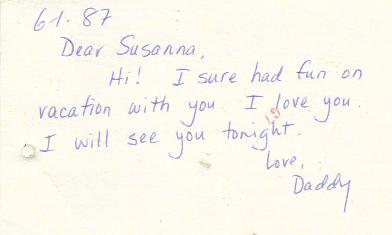 6-1-87
Dear Susanna,
Hi! I sure had fun on
vacation with you. I love you.
I will see you tonight.
Love,
Daddy